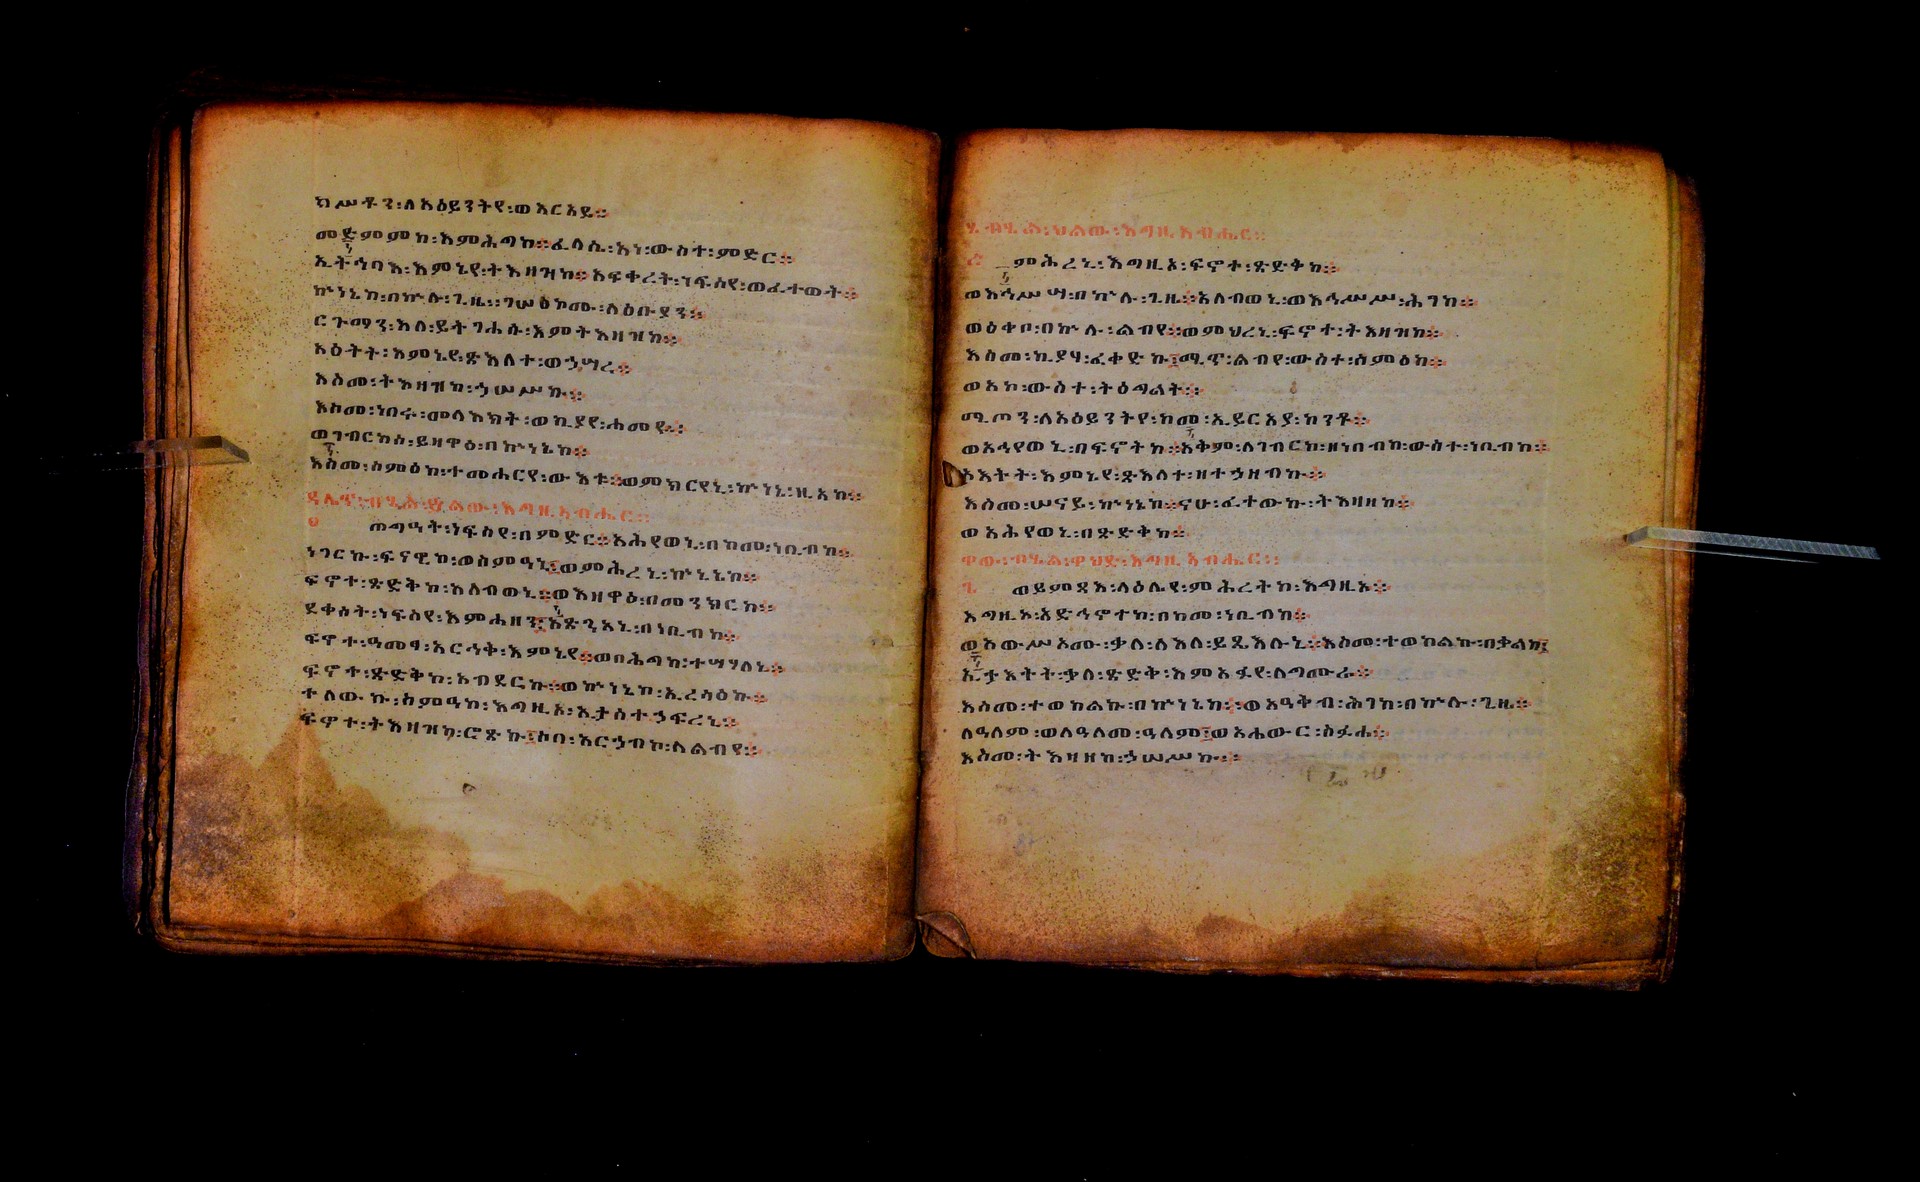 ክሥቶን፡ለአዕይንትየ፡ወእርአይ።
መድምምከ፡እምሕግከ።ፈላሲ፡አነ፡ውስተ፡ምድር።
ኢትኅባእ፡እምኔየ፡ትእዛዝከ።አፍቀረት፡ነፍስየ፡ወፈተወት።
ኵነኔከ፡በኵሉ፡ጊዜ።ገሠፅኮሙ፡ለዕቡያን።
ርጉማን፡እለ፡ይትገሐሱ፡እምትእዛዝከ።
አዕትት፡እምኔየ፡ጽእለተ፡ወኃሣረ።
እስመ፡ትእዛዝከ፡ኃሠሥኩ።
እስመ፡ነበሩ፡መላእክት፡ወኪያየ፡ሐመዩ።
ወገብርከሰ፡ይዛዋዕ፡በኵነኔከ።
እስመ፡ስምዕከ፡ተመሐርየ፡ውእቱ።ወምክርየኒ፡ኵነኔ፡ዚአከ።
ዳሌጥ፡ብሂል፡ድልው፡እግዚአብሔር።
፬ ጠግዓት፡ነፍስየ፡በምድር።አሕየወኒ፡በከመ፡ነቢብከ።
ነገርኩ፡ፍናዊከ፡ወሰምዓኒ፤ወምሕረኒ፡ኵነኔከ።
ፍኖተ፡ጽድቅከ፡አለብወኒ።ወእዛዋዕ፡በመንክርከ።
ደቀሰት፡ነፍስየ፡እምሐዘን፤አጽንዓኒ፡በነቢብከ።
ፍኖተ፡ዓመፃ፡አርኅቅ፡እምኔየ።ወበሕግከ፡ተሣሃለኒ።
ፍኖተ፡ጽድቅከ፡አብደርኩ።ወኵነኔከ፡ኢረሳዕኩ።
ተለውኩ፡ስምዓከ፡እግዚኦ፡ኢታስተኃፍረኒ።
ፍኖተ፡ትእዛዝከ፡ሮጽኩ፤ሶበ፡አርኃብኮ፡ለልብየ።
ሄ፡ብሂል፡ህልው፡እግዚአብሔር።
፭ ምሕረኒ፡እግዚኦ፡ፍኖተ፡ጽድቅከ።
ወእኅሥሣ፡በኵሉ፡ጊዜ።አለብወኒ፡ወእኅሥሥ፡ሕገከ።
ወዕቀቦ፡በኵሉ፡ልብየ።ወምህረኒ፡ፍኖተ፡ትእዛዝከ።
እስመ፡ኪያሃ፡ፈቀድኩ፤ሚጥ፡ልብየ፡ውስተ፡ስምዕከ።
ወአኮ፡ውስተ፡ትዕግልት።
ሚጦን፡ለአዕይንትየ፡ከመ፡ኢይርአያ፡ከንቶ።
ወአሕየወኒ፡በፍኖትከ።አቅም፡ለገብርከ፡ዘነበብከ፡ውስተ፡ነቢብከ።
አእትት፡እምኔየ፡ጽእለተ፡ዘተኃዘብኩ።
እስመ፡ሠናይ፡ኵነኔከ።ናሁ፡ፈተውኩ፡ትእዛዘከ።
ወአሕየወኒ፡በጽድቅከ።
ዋው፡ብሂል፡ዋህድ፡እግዚአብሔር።
፮ ወይምጻእ፡ላዕሌየ፡ምሕረትከ፡እግዚኦ።
እግዚኦ፡አድኅኖተከ፡በከመ፡ነቢብከ።
ወአውሥኦሙ፡ቃለ፡ለእለ፡ይጼእሉኒ።እስመ፡ተወከልኩ፡በቃልከ፤
ኢታእትት፡ቃለ፡ጽድቅ፡እምአፉየ፡ለግሙራ።
እስመ፡ተወከልኩ፡በኵነኔከ።ወአዓቅብ፡ሕገከ፡በኵሉ፡ጊዜ።
ለዓለም፡ወለዓለመ፡ዓለም፤ወአሐውር፡ስፉሐ።
እስመ፡ትእዛዘከ፡ኃሠሥኩ።